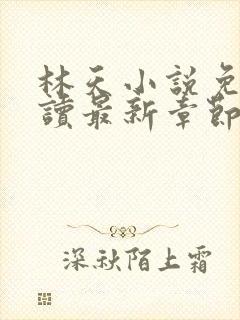 林天小説免
讀最新章節
深秋陌上霜